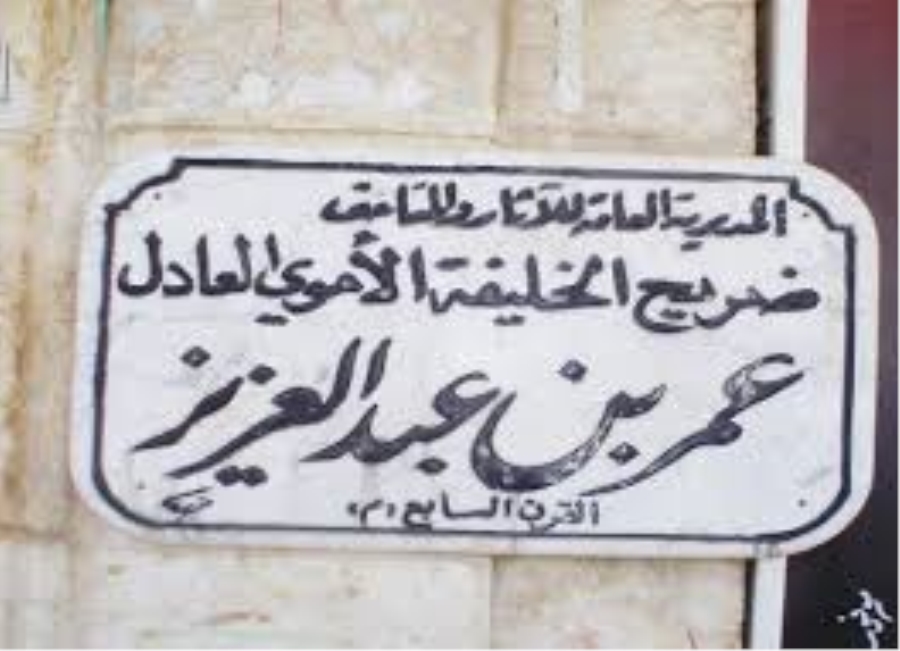 المديرية العامة للآثار والمتاحف
ضريح الخليفة الأموي العادل
عمر بن عبد العزيز
القرن السابع (م)